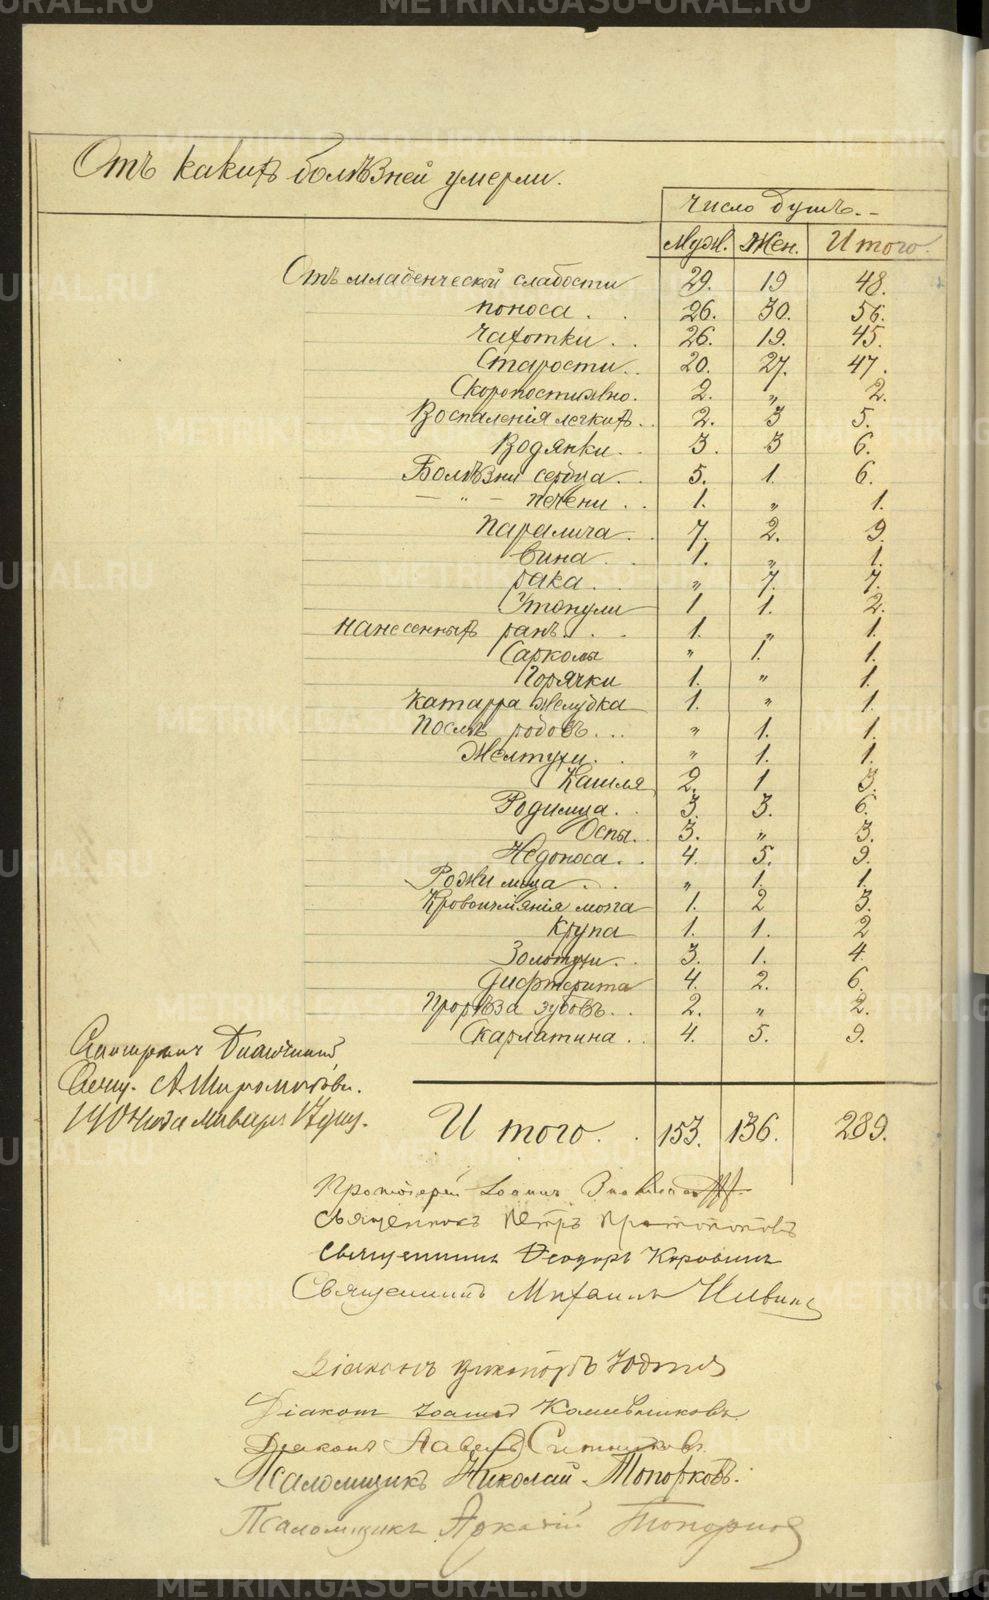 Отъ какихъ болѣзней умерли.
Число душъ.
Муж. Жен. Итого.
Отъ младенческой слабости 29. 19 48.
поноса . . 26. 30. 56.
чахотки . . 26. 19. 45.
Старости . . 20. 27. 47.
Скоропостижно. 2. „ 2.
Воспаленія легкихъ . . 2. 3 5.
Водянки . . 3. 3 6.
Болѣзни сердца . . 5. 1. 6.
— „ — печени . . 1. „ 1.
Паралича . . 7. 2. 9.
Вина . . 1. „ 1.
рака . . „ 7. 7.
Утонули 1 1. 2.
нанесенныхъ ранъ . . . 1. „ 1.
Саркомы „ 1. 1.
Горячки 1. „ 1.
Катарра желудка 1. „ 1.
Послѣ родовъ . . . „ 1. 1.
Желтухи . . „ 1. 1.
Кашля 2. 1 3.
Родимца . . 3. 3. 6.
Оспы . . 3. „ 3.
Недоноса . . 4. 5. 9.
„ 1. 1.
Кровоизліянія мозга 1. 2 3.
Крупа 1. 1. 2
Золотухи . . 3. 1. 4.
Дифтерита 4. 2. 6.
Прорѣза зубовъ . . 2. „ 2.
Скарлатина . . 4. 5. 9.
Итого . . 153. 136. 289.
Протоіерей Іоаннъ
Священникъ Петръ Протопоповъ
Священникъ Ѳеодоръ Коровинъ
Священникъ Михаилъ
Діаконъ Викторъ Юдинъ
Діаконъ Іоаннъ
Діаконъ Павелъ Ситниковъ.
Псаломщикъ Николай Топорковъ.
Псаломщикъ Аркадій
METRIKI.GASU-URAL.RU